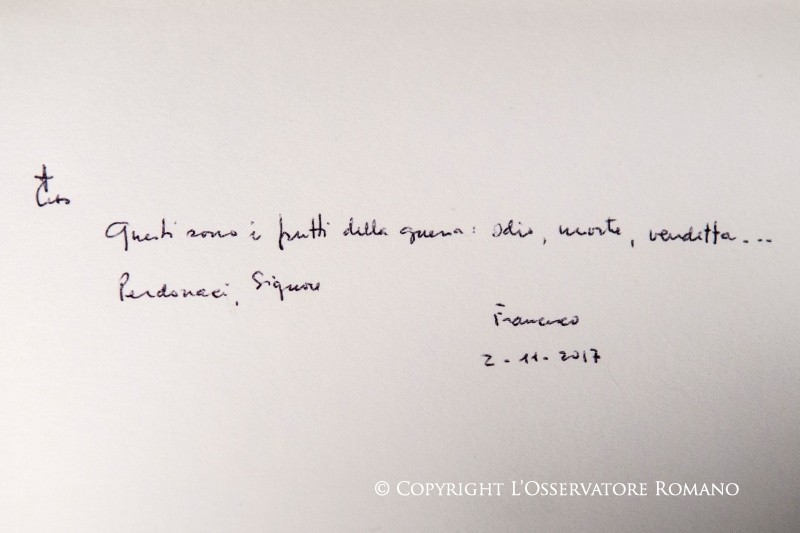 Questi sono i frutti della guerra: odio, morte, vendetta...
Perdonaci, Signore
Francesco
2-11-2017
© COPYRIGHT L'OSSERVATORE ROMANO